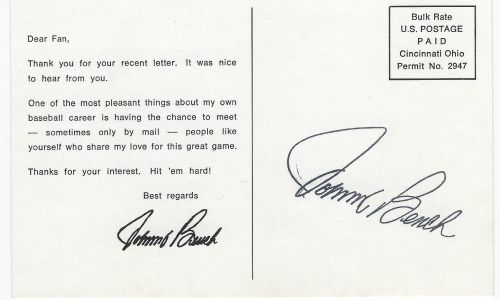 Dear Fan,
Thank you for your recent letter. It was nice
to hear from you.
One of the most pleasant things about my own
baseball career is having the chance to meet
— sometimes only by mail — people like
yourself who share my love for this great game.
Thanks for your interest. Hit 'em hard!
Best regards
Johnny Bench
Bulk Rate
U.S. POSTAGE
PAID
Cincinnati Ohio
Permit No. 2947
Johnny Bench